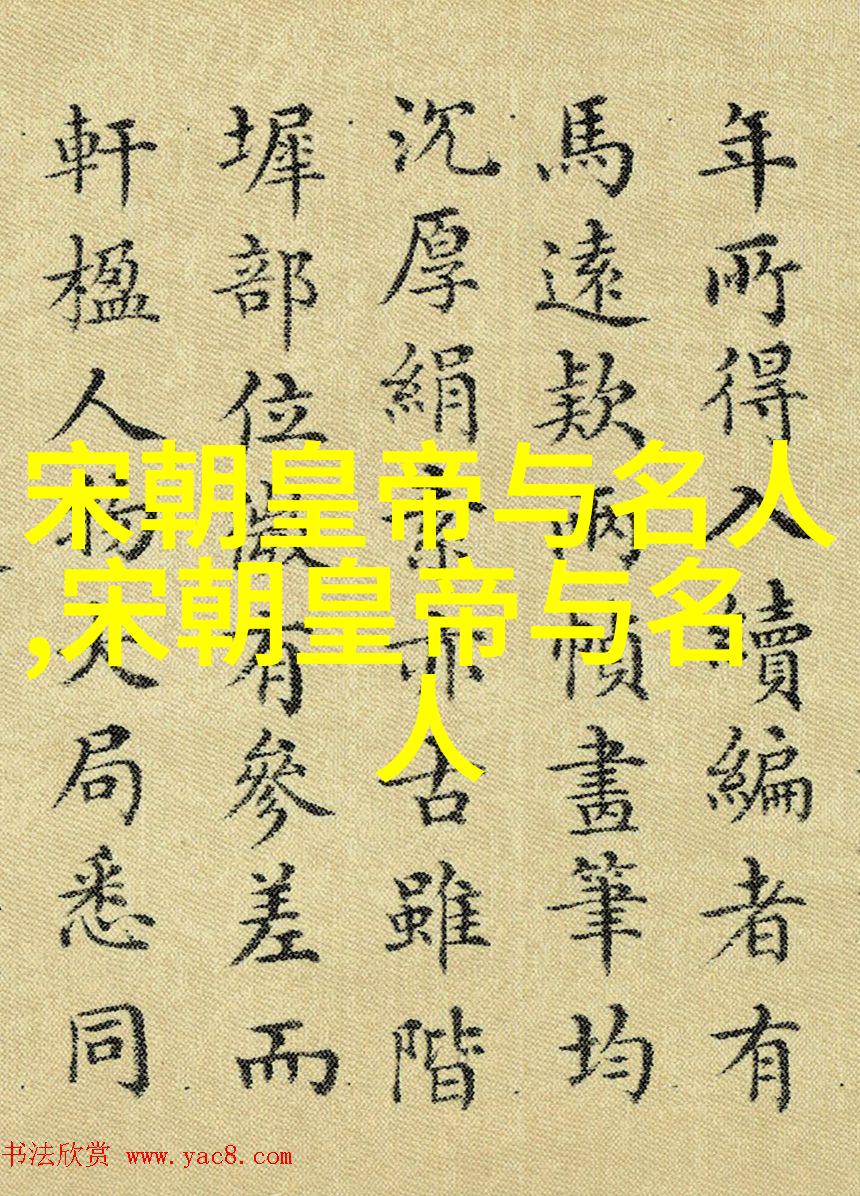 年所得入續編者有
馬遠款兩幀畫筆均
沉厚絹素亦古雖階
墀部位微有參差而
軒楹人物大局悉同
宋朝皇帝与名人
,宋朝皇帝与名
人
书法欣赏 www.yac8.com